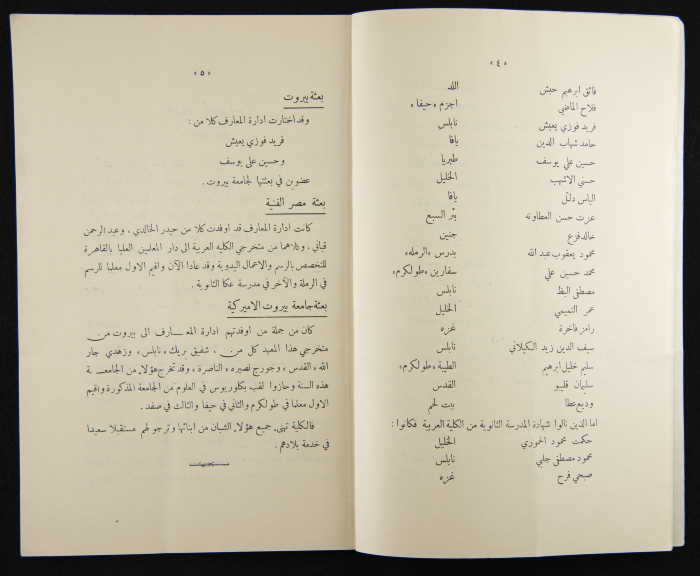 « ٤ »
فائق ابرهيم حبش اللد
فلاح الماضي اجزم «حيفا»
فريد فوزي يعيش نابلس
حامد شهاب الدين يافا
حسين علي يوسف طبريا
حسني الاشهب الخليل
الياس دلل يافا
عزت حسن العطاونه بئر السبع
خالد فزع جنين
محمود يعقوب عبد الله بدرس «الرمله»
محمد حسين علي سفارين «طولكرم»
مصطفى البظ نابلس
عمر التميمي الخليل
رامز فاخرة غزه
سيف الدين زيد الكيلاني نابلس
سليم خليل ابرهيم الطيبة «طولكرم»
سليمان قليبو القدس
وديع عطا بيت لحم
اما الذين نالوا شهادة المدرسة الثانوية من الكلية العربية فكانوا :
حكمت محمود الحموري الخليل
محمود مصطفى جلبي نابلس
صبحي فرح غزه
« ٥ »
بعثة بيروت
وقد اختارت ادارة المعارف كلا من :
فريد فوزي يعيش
وحسين علي يوسف
عضوين في بعثتها لجامعة بيروت .
بعثة مصر الفنية
كانت ادارة المعارف قد اوفدت كلا من حيدر الخالدي ، وعبد الرحمن
قباني ، وكلاهما من متخرجي الكليه العربية الى دار المعلمين العليا بالقاهرة
للتخصص بالرسم والاعمال اليدوية وقد عادا الآن واقيم الاول معلما للرسم
في الرملة والآخر في مدرسة عكا الثانوية .
بعثة جامعة بيروت الاميركية
كان من جملة من اوفدتهم ادارة المعـارف الى بيروت من
متخرجي هذا المعهد كل من ، شفيق بريك «نابلس» وزهدي جار
الله «القدس» وجورج نصيره «الناصرة» وقد تخرج هؤلاء من الجامعـة
هذه السنة وحازوا لقب بكلوريوس في العلوم من الجامعة المذكورة واقيم
الاول معلما في طولكرم والثاني في حيفا والثالث في صفد .
فالكلية تهنئ جميع هؤلاء الشبان من ابنائها وترجو لهم مستقبلا سعيدا
في خدمة بلادهم .